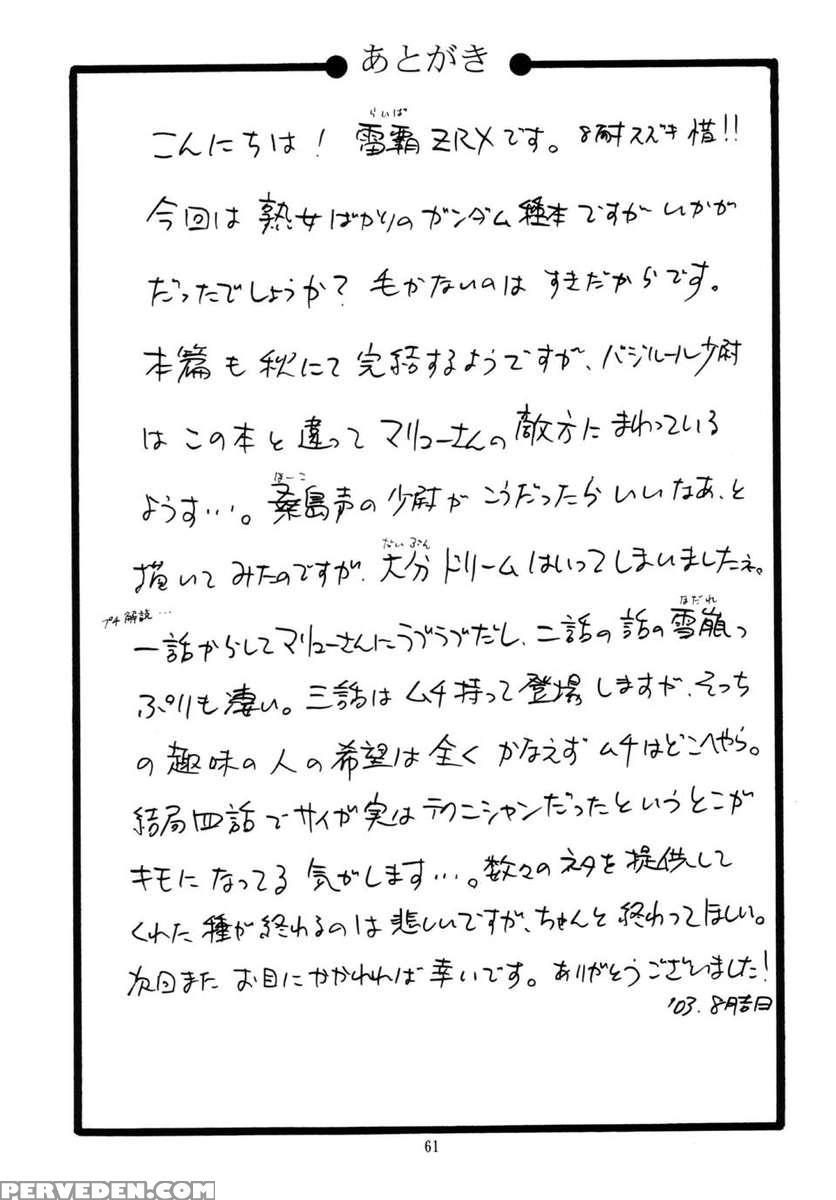 あとがき
こんにちは! 雷覇ZRXです。8耐スズキ惜!!
らいば
今回は熟女ばかりのガンダム種本ですがいかが
だったでしょうか? 毛がないのはすきだからです。
本篇も秋にて完結するようですが、バジルール少尉
はこの本と違ってマリューさんの敵方にまわっている
ようす…。桑島声の少尉がこうだったらいいなあ、と
ほーこ
描いてみたのですが、大分ドリームはいってしまいましたネ。
だいぶん
プチ解説…
一話からしてマリューさんにラブラブだし、二話の話の雪崩っ
なだれ
ぷりも凄い。三話はムチ持って登場しますが、そっち
の趣味の人の希望は全くかなえずムチはどこへやら。
結局四話でサイが実はテクニシャンだったというとこが
キモになってる気がします…。数々のネタを提供して
くれた種が終わるのは悲しいですが、ちゃんと終わってほしい。
次回またお目にかかれれば幸いです。ありがとうございました!
'03. 8月吉日
61
PERVEDEN.COM